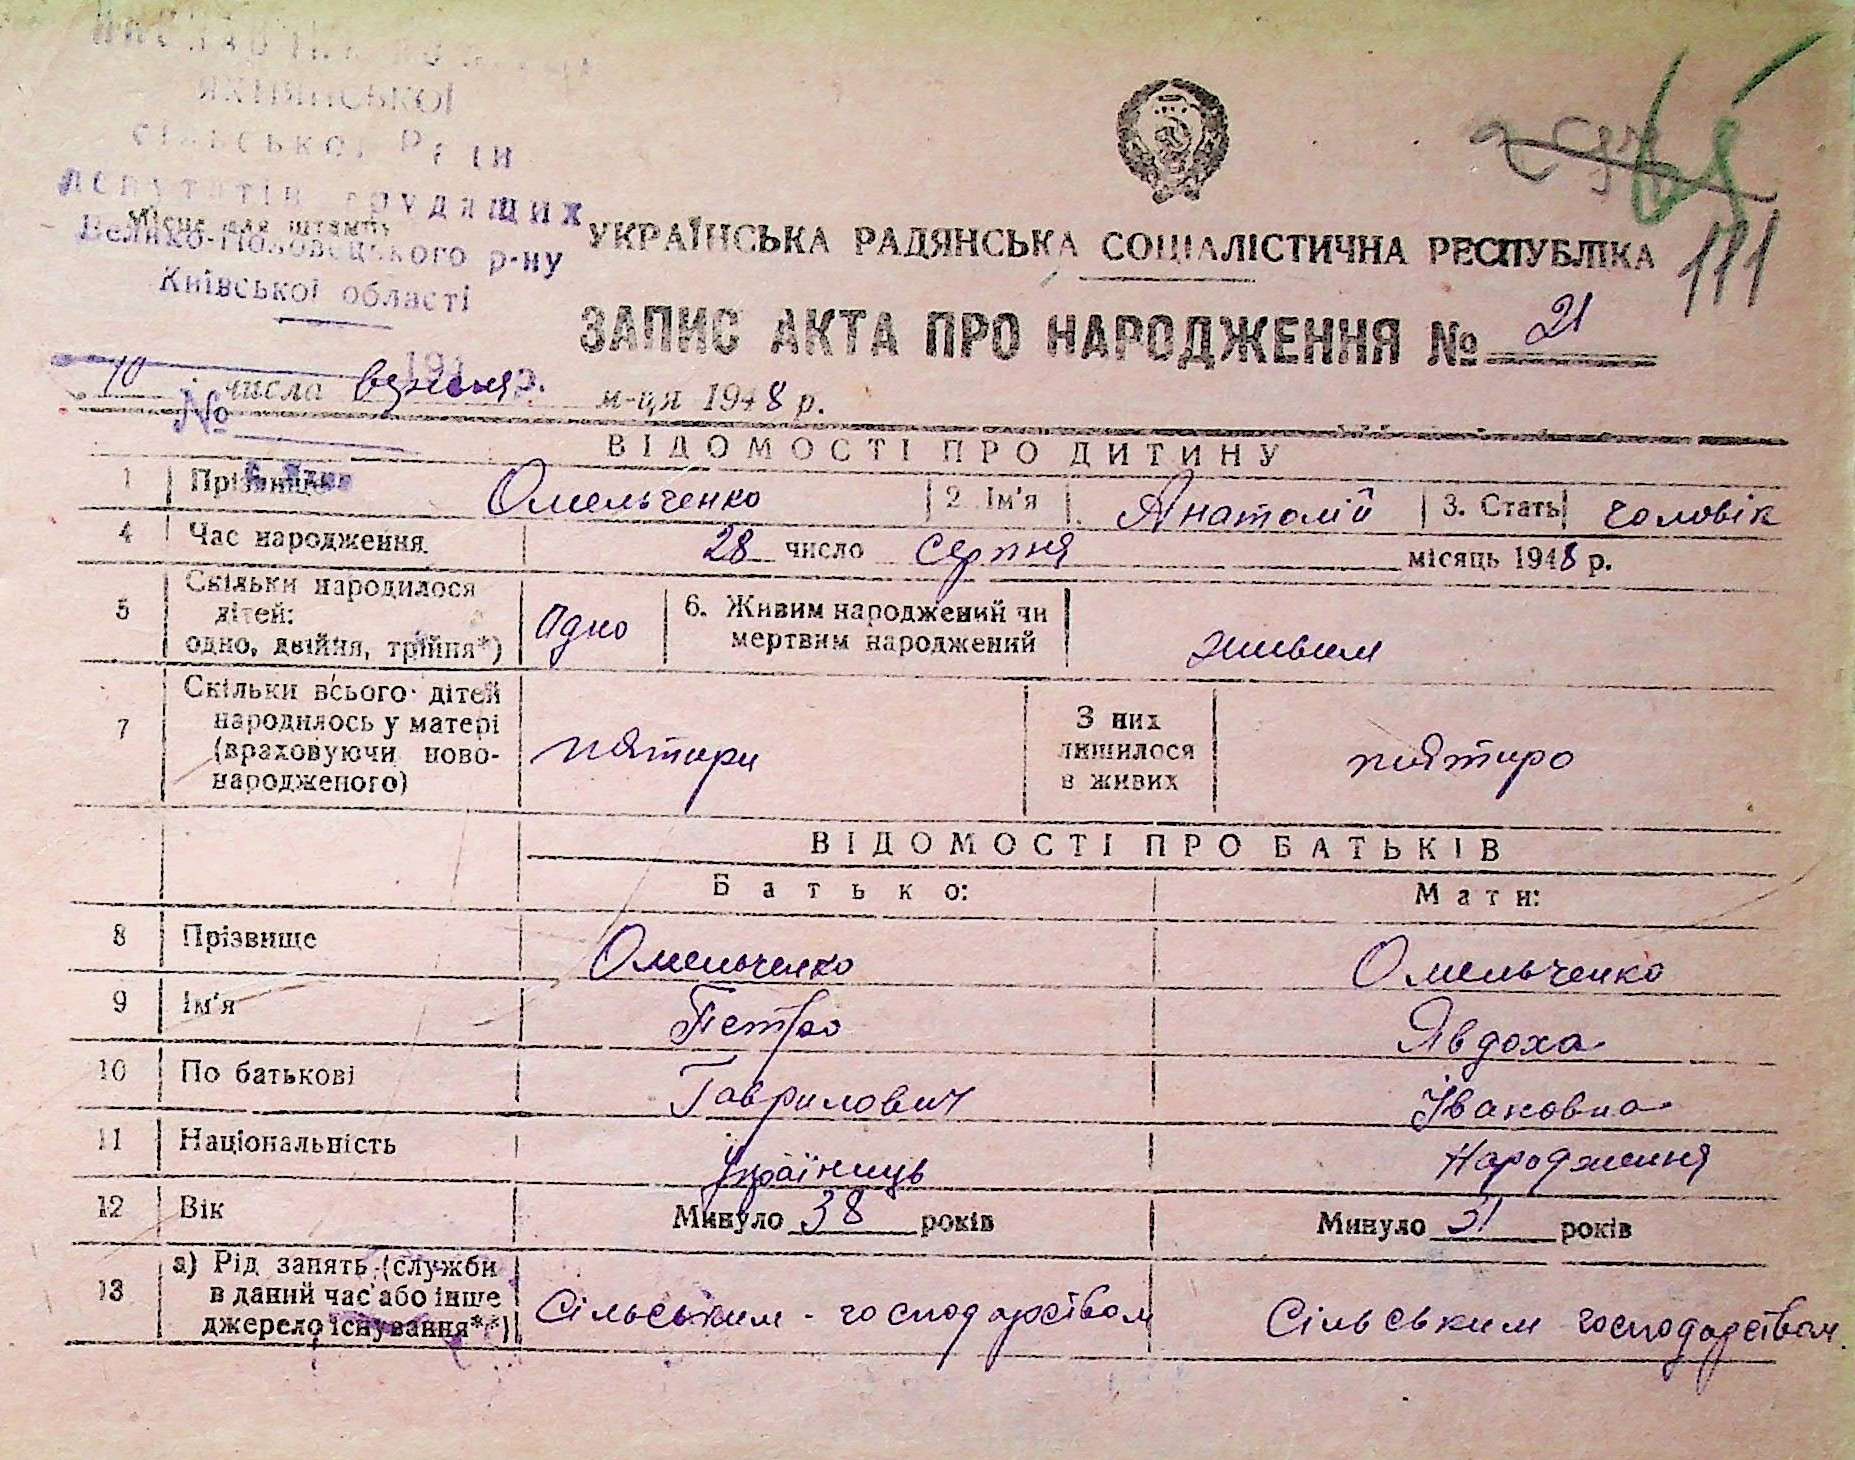 сільської Ради
депутатів трудящих
Місце для штампу
Велико-Половецького р-ну
Київської області
111
УКРАЇНСЬКА РАДЯНСЬКА СОЦІАЛІСТИЧНА РЕСПУБЛІКА
ЗАПИС АКТА ПРО НАРОДЖЕННЯ № 21
10 числа вересня м-ця 1948 р.
№
ВІДОМОСТІ ПРО ДИТИНУ
1 Прізвище Омельченко 2. Ім'я Анатолій 3. Стать чоловік
4 Час народження 28 число серпня місяць 1948 р.
5 Скільки народилося дітей: одно, двійня, трійня*) одно 6. Живим народжений чи мертвим народжений живим
7 Скільки всього дітей народилось у матері (враховуючи ново-народженого) пятири З них лишилося в живих пятиро
ВІДОМОСТІ ПРО БАТЬКІВ
Батько: Мати:
8 Прізвище Омельченко Омельченко
9 Ім'я Петро Явдоха
10 По батькові Гаврилович Івановна
11 Національність Народження
12 Вік Минуло 38 років Минуло 31 років
13 а) Рід занять (служби в даний час або інше джерело існування**) Сільським - господарством Сільським господарством